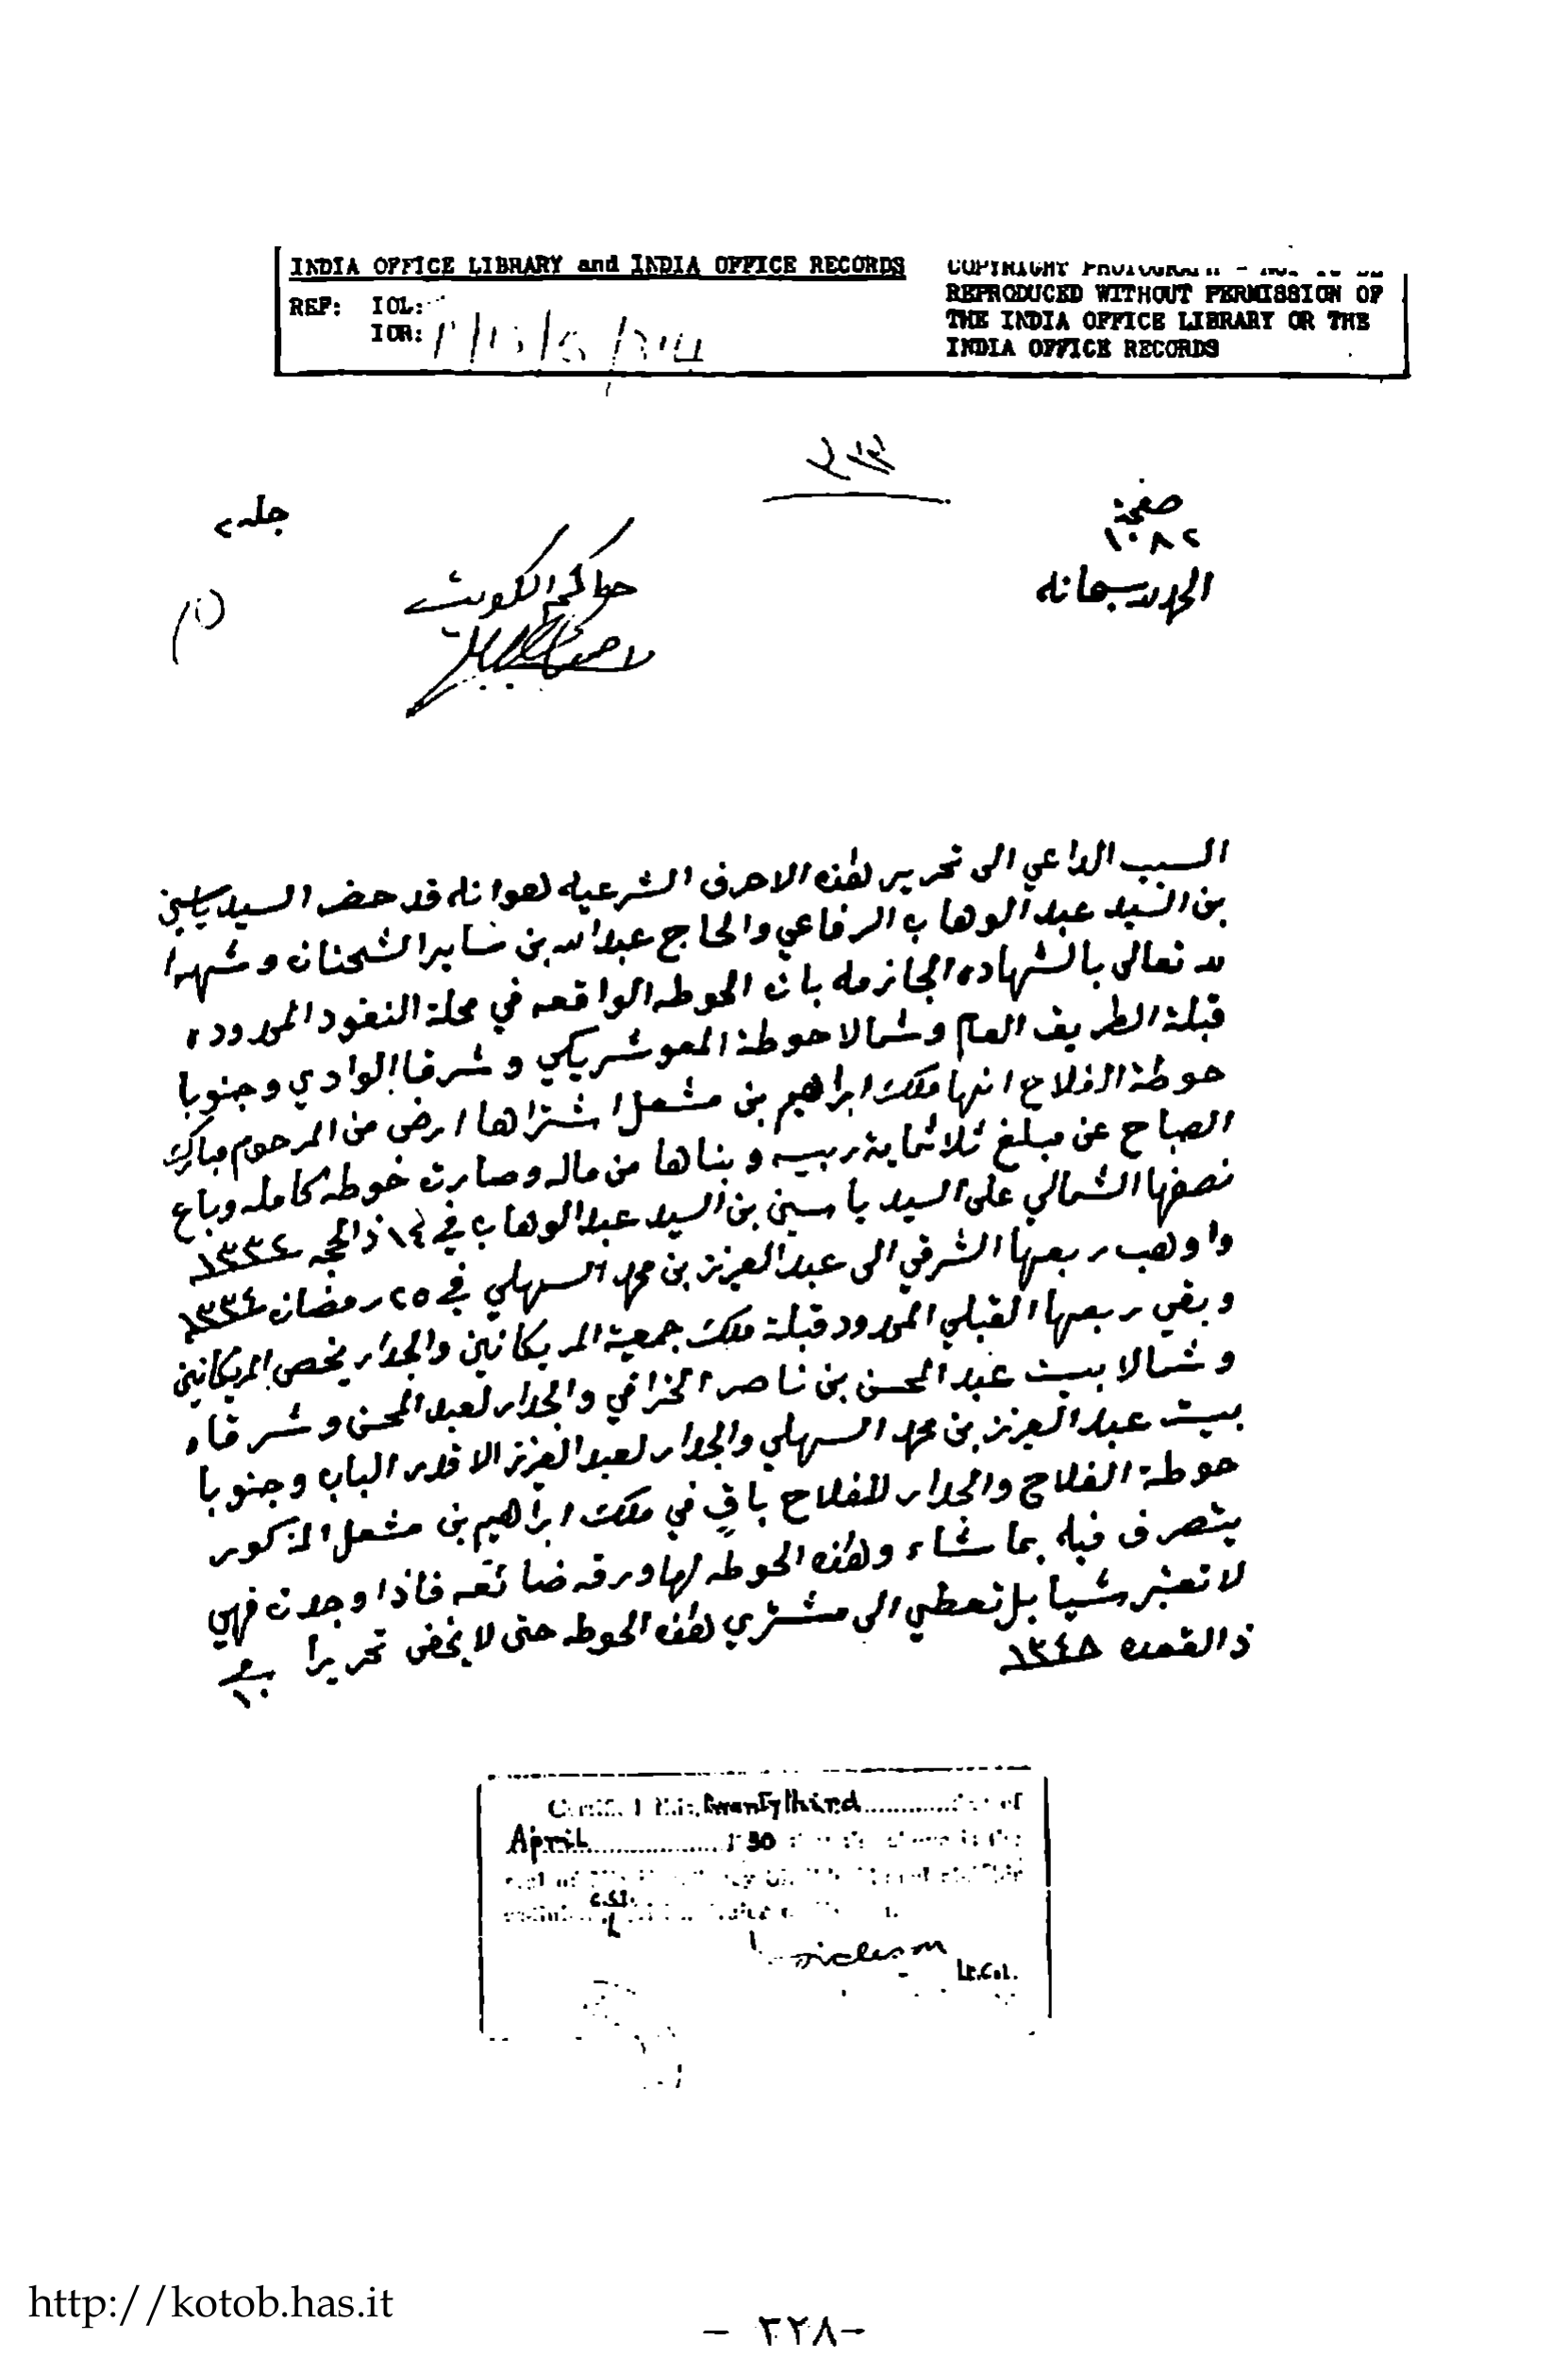 INDIA OFFICE LIBRARY and INDIA OFFICE RECORDS
REF: IOL:
IOR:
REPRODUCED WITHOUT PERMISSION OF
THE INDIA OFFICE LIBRARY OR THE
INDIA OFFICE RECORDS
صفحة
١٠٨٢
جلد ٢
الحمد لله سبحانه
حاكم الكويت
السبب الداعي الى تحرير هذه الاحرف الشرعيه هو انه قد حضر السيد ياسين
بن السيد عبد الوهاب الرفاعي والحاج عبدالله بن ساير الشحنان وشهدا
لله تعالى بالشهاده الجازمه بان الحوطه الواقعه في محلة النفود المحدوده
قبلة الطريق العام وشمالا حوطة المعوشريكي وشرقا الوادي وجنوبا
حوطة الفلاح انها ملك ابراهيم بن مشعل اشتراها ارض من المرحوم مبارك
الصباح عن مبلغ ثلاثماية ربيه وبناها من ماله وصارت حوطه كامله وباع
نصفها الشمالي على السيد ياسين بن السيد عبد الوهاب في ١٤ ذالحجه ١٣٣٢
واوهب ربعها الشرقي الى عبد العزيز بن محمد السهلي في ٢٥ رمضان ١٣٣٤
وبقي ربعها القبلي المحدود قبلة ملك جمعية المريكانين والجدار يخص المريكانين
وشمالا بيت عبد المحسن بن ناصر الخرافي والجدار لعبد المحسن وشرقا
بيت عبد العزيز بن محمد السهلي والجدار لعبد العزيز الا قدر الباب وجنوبا
حوطة الفلاح والجدار للفلاح باقٍ في ملك ابراهيم بن مشعل المذكور
يتصرف فيه بما شاء وهذه الحوطه لها ورقه ضائعه فاذا وجدت فهي
لا تعتبر شيا بل تعطي الى مشتري هذه الحوطه حتى لا يخفى تحريرا في ١٠
ذالقعده ١٣٤٨
twenty third
April 1930
Lt. Col.
http://kotob.has.it
- ٢٢٨ -